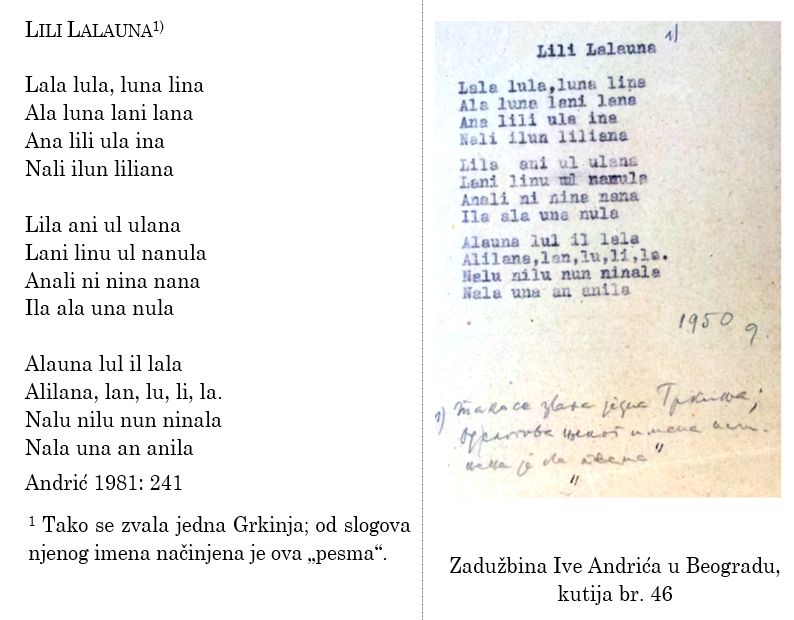 LILI LALAUNA¹⁾
Lala lula, luna lina
Ala luna lani lana
Ana lili ula ina
Nali ilun liliana
Lila ani ul ulana
Lani linu ul nanula
Anali ni nina nana
Ila ala una nula
Alauna lul il lala
Alilana, lan, lu, li, la.
Nalu nilu nun ninala
Nala una an anila
Andrić 1981: 241
¹ Tako se zvala jedna Grkinja; od slogova
njenog imena načinjena je ova „pesma“.
Lili Lalauna ¹⁾
Lala lula,luna lina
Ala luna lani lana
Ana lili ula ina
Nali ilun liliana
Lila ani ul ulana
Lani linu ul nanula
Anali ni nina nana
Ila ala una nula
Alauna lul il lala
Alilana,lan,lu,li,la.
Nalu nilu nun ninala
Nala una an anila
1950 g.
¹⁾ Тако се звала једна Гркиња;
од слогова њеног имена начи-
њена је ова „песма"
Zadužbina Ive Andrića u Beogradu,
kutija br. 46